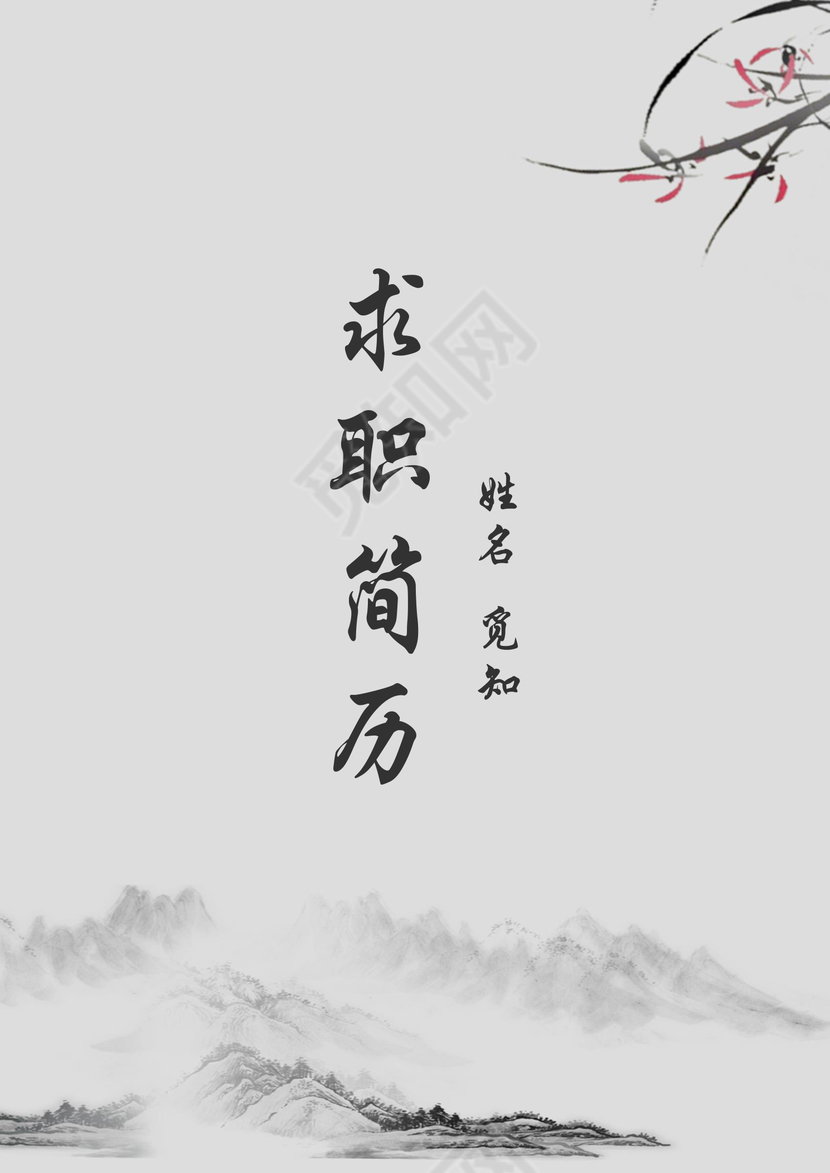 求职简历
姓名 觅知
觅知网